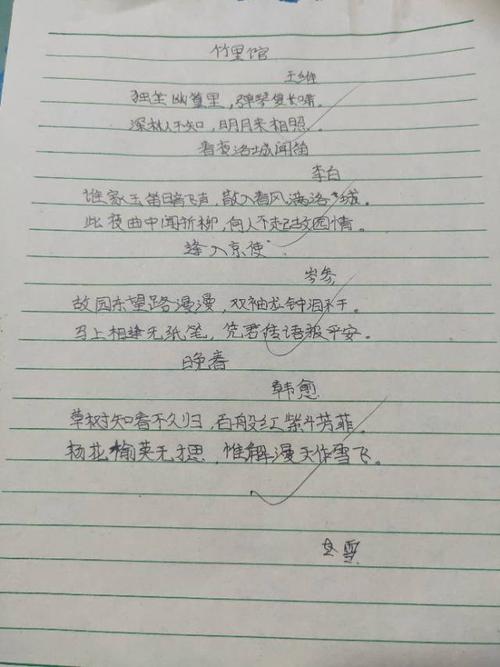 竹里馆
王维
独坐幽篁里，弹琴复长啸。
深林人不知，明月来相照。
春夜洛城闻笛
李白
谁家玉笛暗飞声，散入春风满洛城。
此夜曲中闻折柳，何人不起故园情。
逢入京使
岑参
故园东望路漫漫，双袖龙钟泪不干。
马上相逢无纸笔，凭君传语报平安。
晚春
韩愈
草树知春不久归，百般红紫斗芳菲。
杨花榆英无才思，惟解漫天作雪飞。
雪